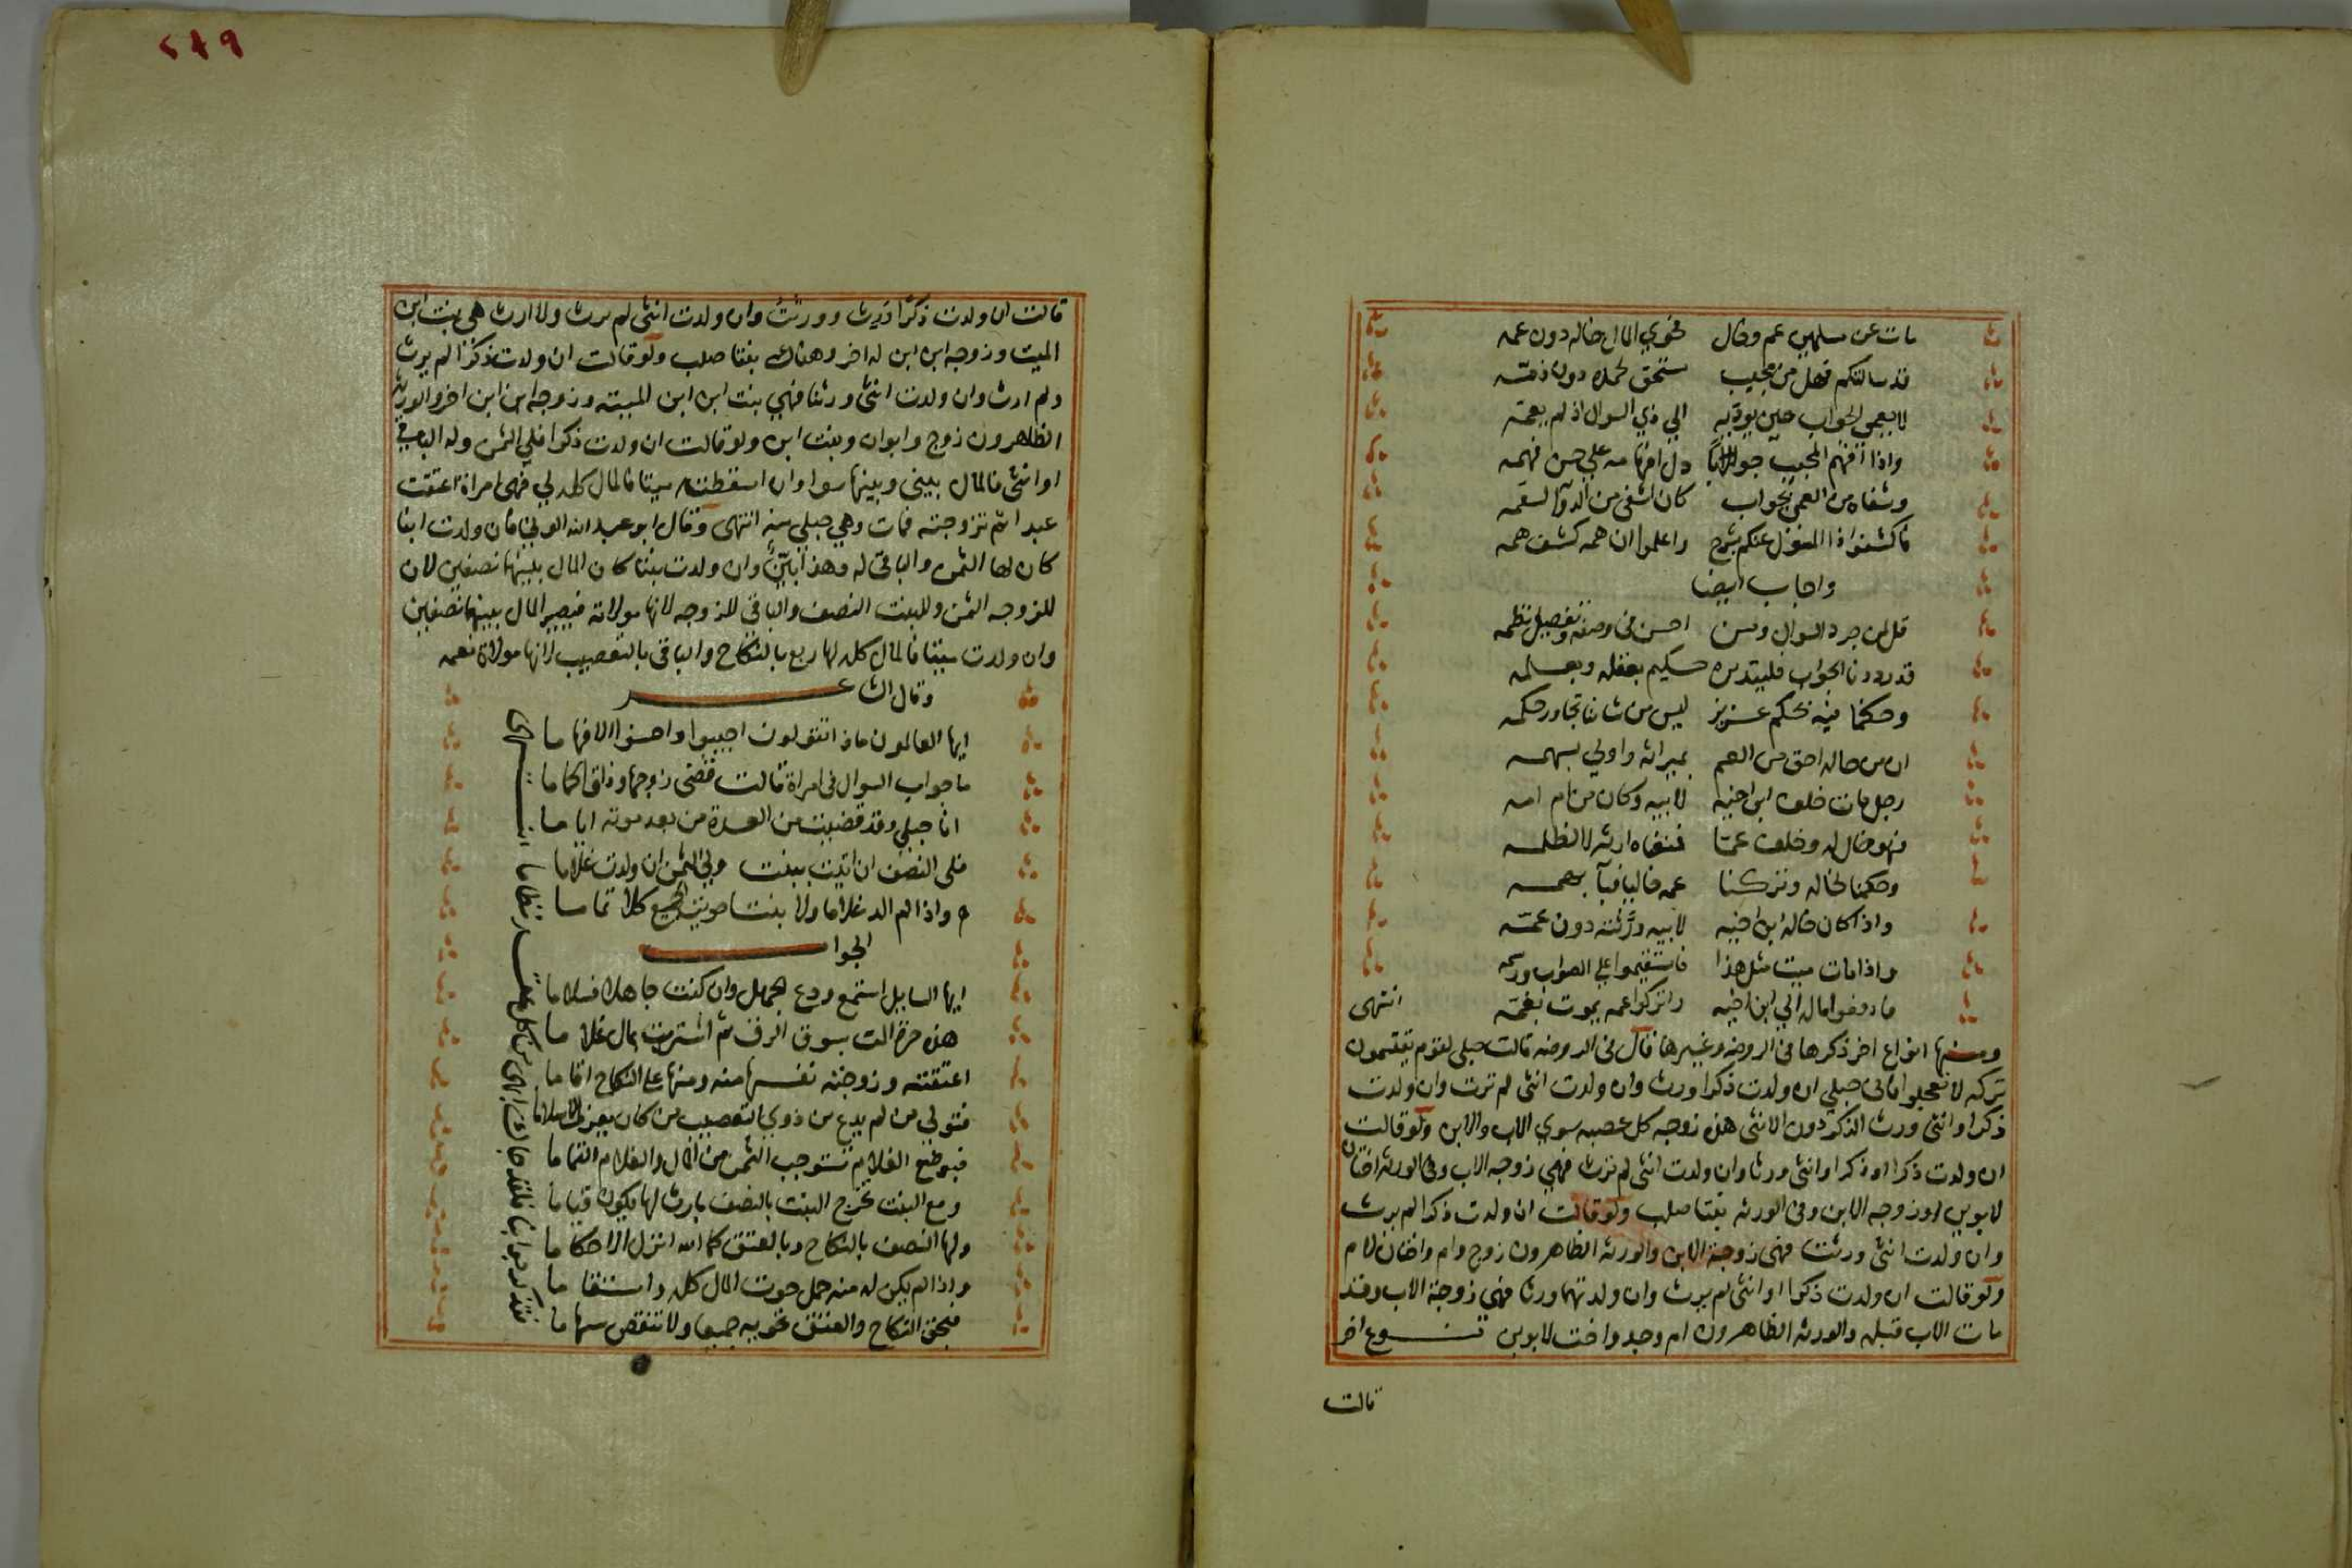 مات عن مسلمين عم وخال فحوي المال خاله دون عمه
قد سالتكم فهل من مجيب مستحق لحمده دون ذمته
لا يعمي الجواب حين يوديه الي ذي السوال اذ لم يعمه
واذا افهم المجيب جوابا دل افهامه علي حسن فهمه
وشفاه من العمي بجواب كان اشفي من الدوا لسقمه
فاكشفوا ذا المغزل عنكم بشرح واعلموا ان همه كشف همه
واجاب ايضا
قل لمن جرد السوال ومن احسن في وصفه وتفصيل نظمه
قد رددنا الجواب فليتدبره حكيم بعقله وبعلمه
وحكمنا فيه بحكم عزيز ليس من شاننا تجاوز حكمه
ان من خاله احق من العم بميراثه واولي بسهمه
رجل مات خلف ابن اخيه لابيه وكان من ام امه
فهو خال له وخلف عما فنفاه ارثه لا لظلمه
وحكمنا لخاله وتركنا عمه خايبا فبا بهمه
واذا كان خاله ابن اخيه لابيه ورثته دون عمه
واذا مات ميت مثل هذا فاستقيموا علي الصواب ورسمه
فادفعوا ماله الي ابن اخيه واتركوا عمه يموت بغمه انتهى
ومنها انواع اخر ذكرها في الروضه وغيرها قال في الروضه قالت حبلي لقوم يقتسمون
تركه لا تعجلوا فاني حبلي ان ولدت ذكرا ورث وان ولدت انثى لم ترث وان ولدت
ذكرا وانثى ورث الذكر دون الانثى هذه زوجه كل عصبه سوي الاب والابن ولو قالت
ان ولدت ذكرا او ذكرا وانثى ورثا وان ولدت انثى لم ترث فهي زوجه الاب وفي الورثه اختان
لابوين او زوجه الابن وفي الورثه بنتا صلب ولو قالت ان ولدت ذكرا لم يرث
وان ولدت انثى ورثت فهي زوجة الابن والورثه الظاهرون زوج وام واختان لام
ولو قالت ان ولدت ذكرا او انثى لم يرث وان ولدتهما ورثا فهي زوجة الاب وقد
مات الاب قبله والورثه الظاهرون ام وجد واخت لابوين نوع اخر
قالت
٢٤٩
قالت ان ولدت ذكرا ورث وورثت وان ولدت انثى لم ترث ولا ارث هي بنت ابن
الميت وزوجه ابن ابن له اخر وهناك بنتا صلب ولو قالت ان ولدت ذكرا لم يرث
ولم ارث وان ولدت انثى ورثنا فهي بنت ابن ابن الميته وزوجه ابن ابن اخر والورثه
الظاهرون زوج وابوان وبنت ابن ولو قالت ان ولدت ذكرا فلي الثمن وله الباقي
او انثى فالمال بيني وبينها سوا وان اسقطت ميتا فالمال كله لي فهي امراة اعتقت
عبدا ثم تزوجته فمات وهي حبلي منه انتهى وقال ابو عبد الله الوني فان ولدت ابنا
كان لها الثمن والباقي له وهذا بين وان ولدت بنتا كان المال بينهما نصفين لان
للزوجه الثمن وللبنت النصف والباقي للزوجه لانها مولاته فيصير المال بينهما نصفين
وان ولدت ميتا فالمال كله لها ربع بالنكاح والباقي بالتعصيب لانها مولاة نعمه
وقال الشاعر
ايها العالمون ماذا تقولون اجيبوا واحسنوا الافهاما
ما جواب السوال في امراة قالت قضى زوجها وذاق الحماما
انا حبلي وقد قضيت من العدة من بعد موته اياما
فلي النصف ان اتيت ببنت ولي الثمن ان ولدت غلاما
واذا لم الد غلاما ولا بنتا حويت الجميع كلا تماما
الجواب
ايها السايل استمع ودع الجهل وان كنت جاهلا فسلاما
هذه حرة اتت بسوق الرق ثم اشترت بمال غلاما
اعتقته وزوجته نفسها منه ومنها على النكاح اقاما
فتولي من لم يدع من ذوي التعصيب من كان يعرف الاسلاما
فبوضع الغلام تستوجب الثمن من المال والغلام التماما
ومع البنت تخرج البنت بالنصف بارث لها يكون قياما
ولها النصف بالنكاح وبالعتق كما الله انزل الاحكاما
واذا لم يكن له منه حمل حوت المال كله واستقاما
فبحق النكاح والعتق تحويه جميعا ولا تنقص سهاما